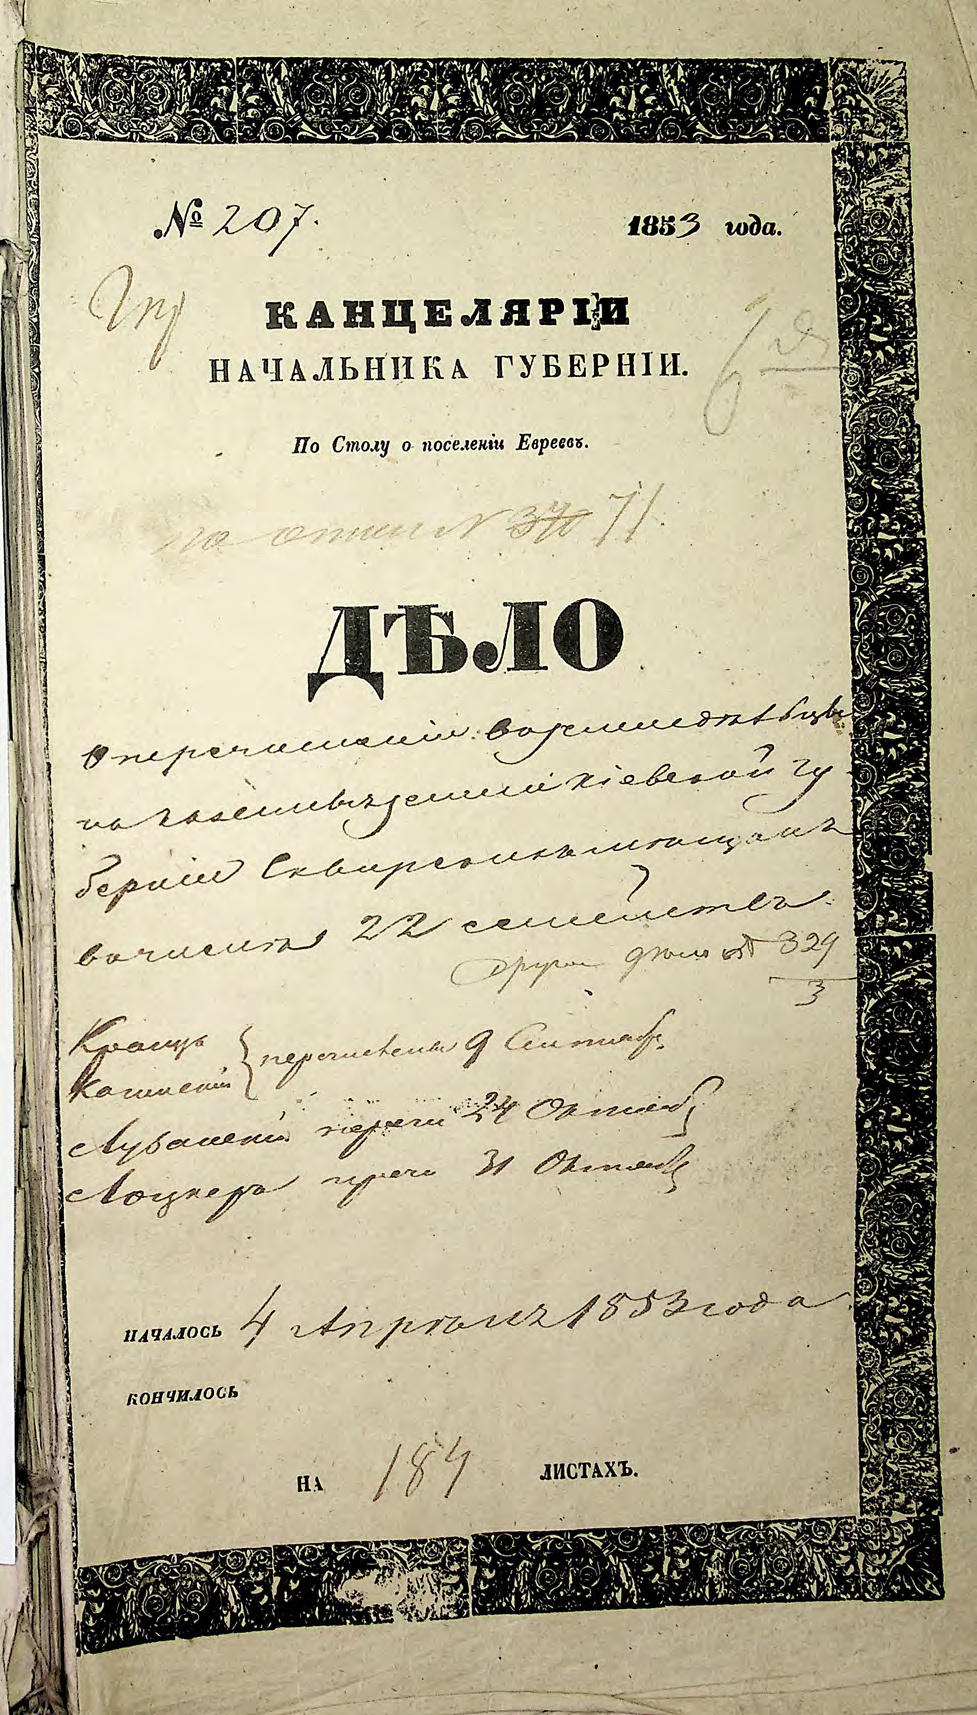 № 207. 1853 года.
КАНЦЕЛЯРІИ
НАЧАЛЬНИКА ГУБЕРНІИ.
По Столу о поселеніи Евреевъ.
по описи № 340 71
ДѢЛО
О перечисленіи въ земледѣльцы
на казенныхъ земляхъ Кіевской гу
берніи Сквирскихъ мещанъ
въ числѣ 22 семействъ.
другое дѣло 329
3
перечислены 9 Сентяб.
Лубанскій переч 24 Октяб
Лоцкеръ переч 31 Октяб
НАЧАЛОСЬ 4 Апрѣля 1853 года
КОНЧИЛОСЬ
НА 184 ЛИСТАХЪ.